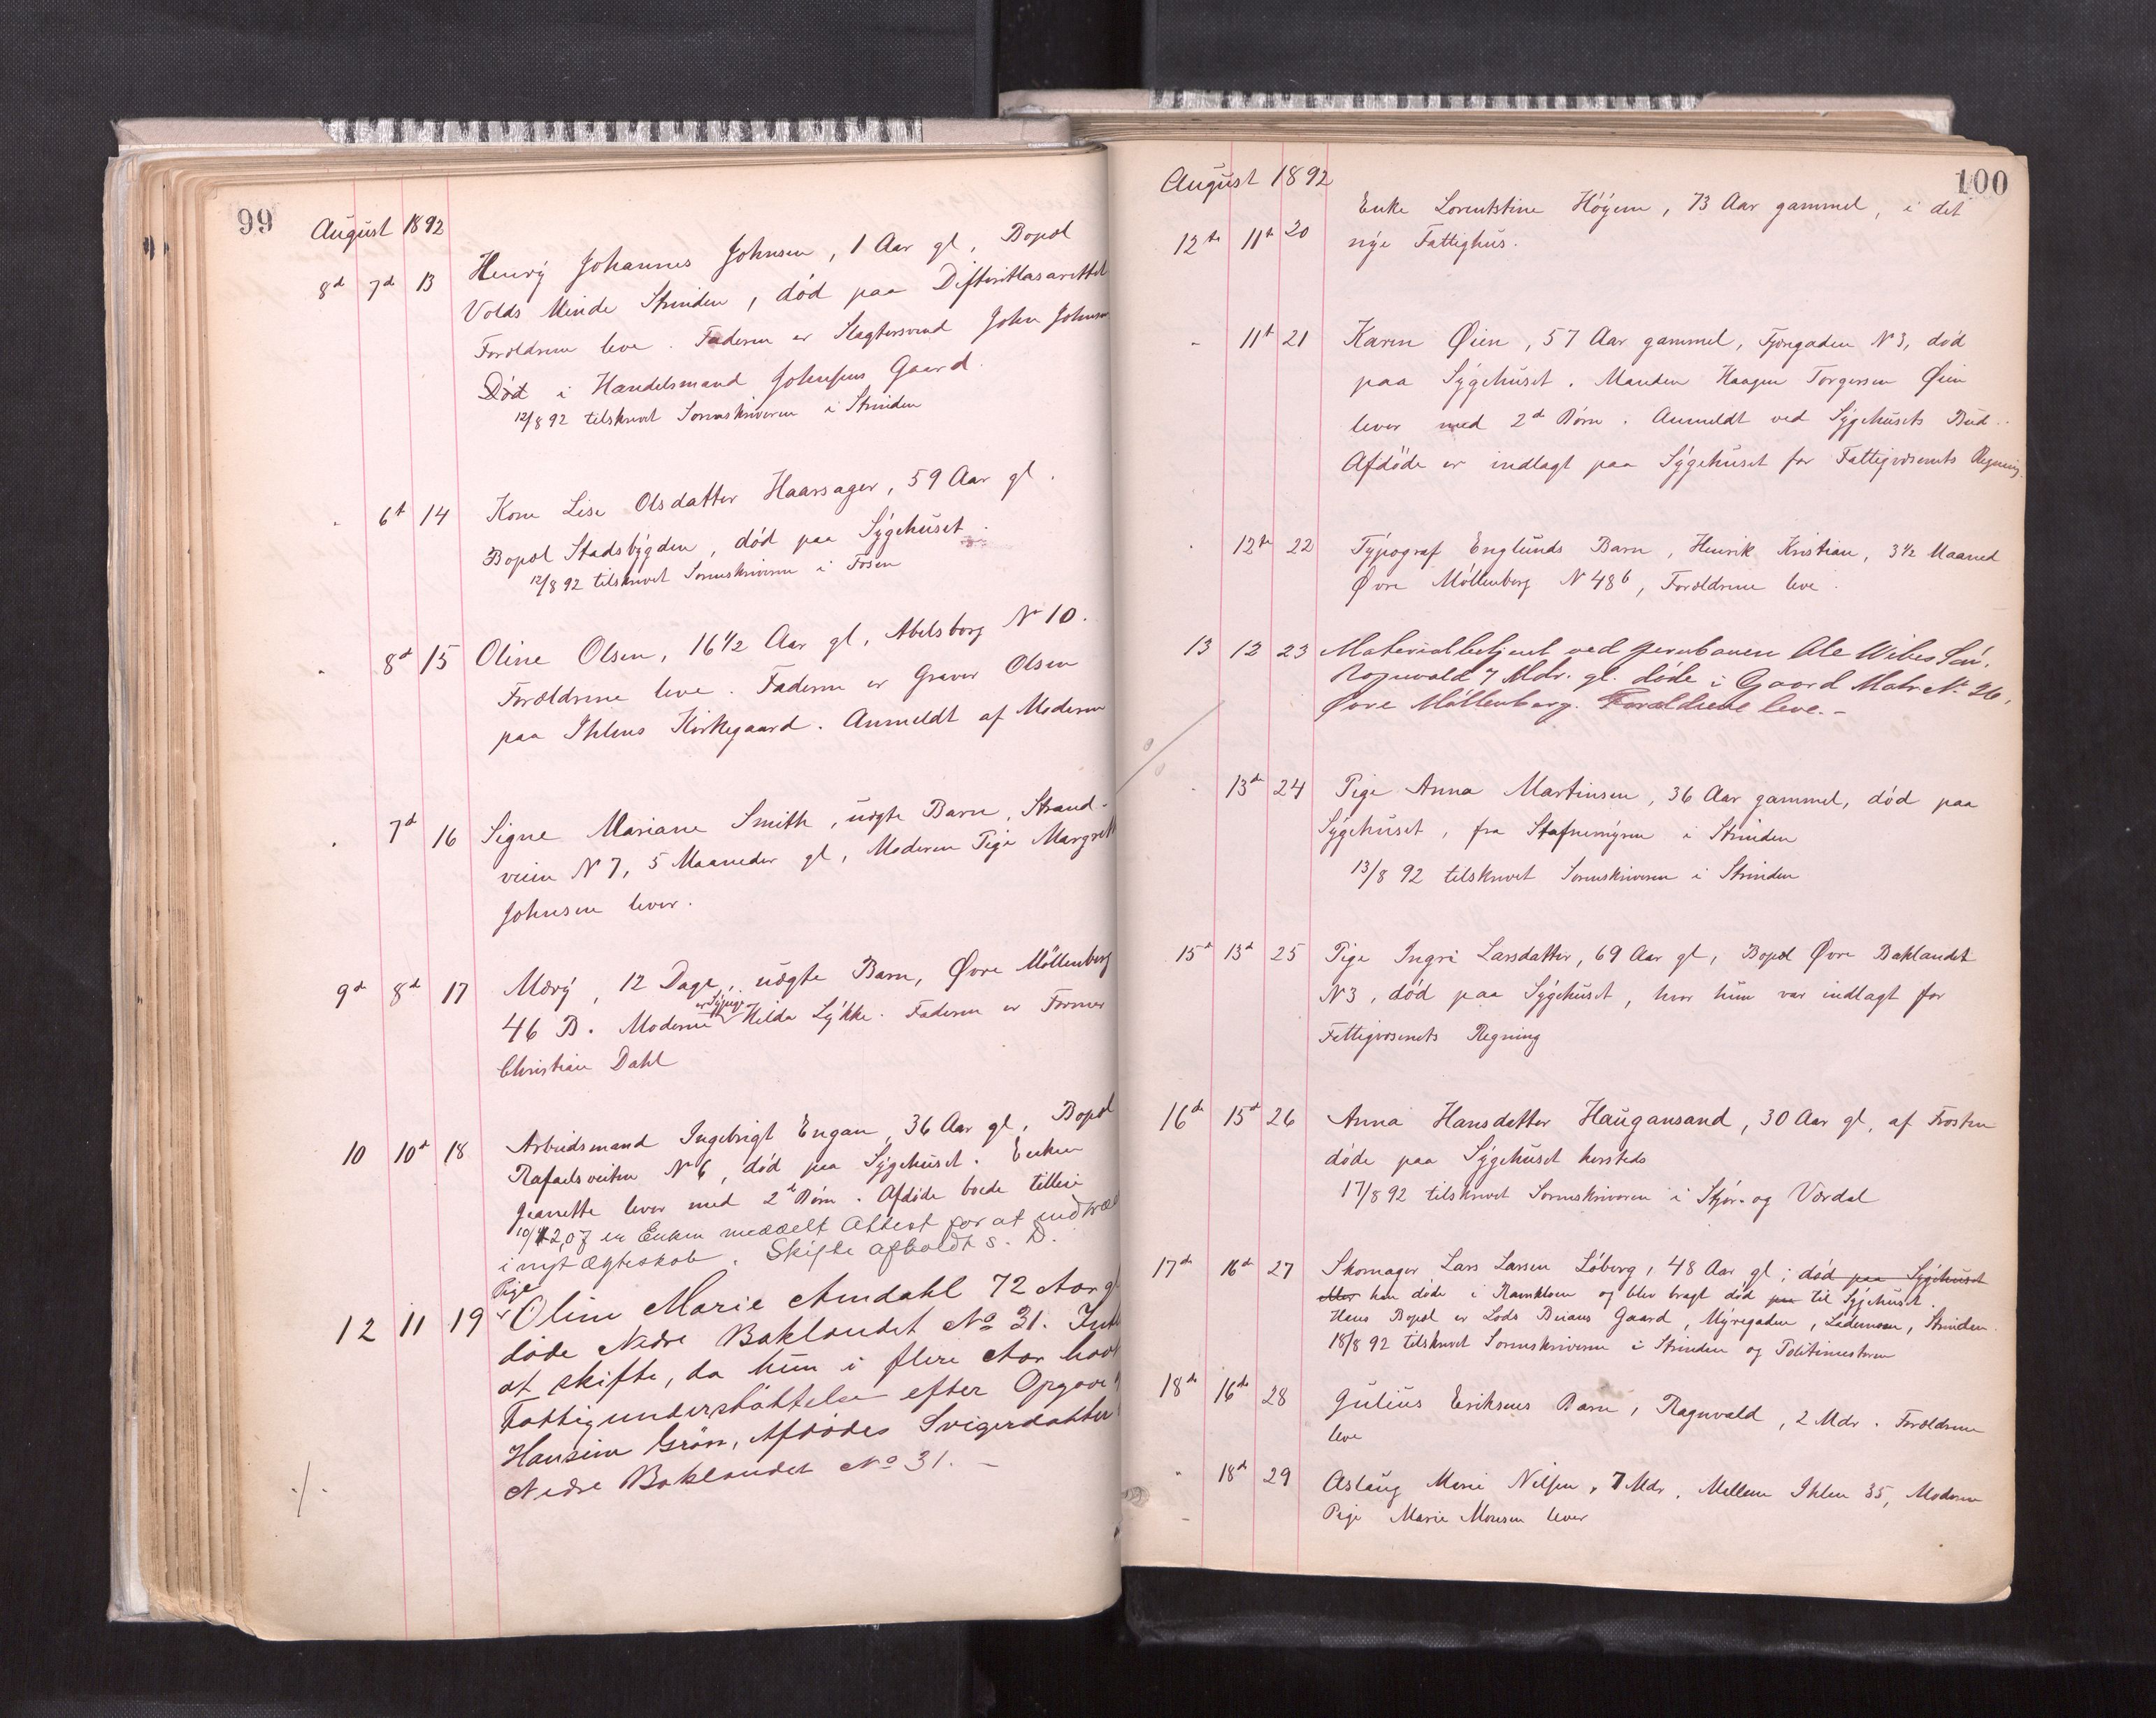 99
August 1892
8d 7d 13 Henrÿ Johannes Johnsen, 1 Aar gl, Bopæl
Volds Minde Strinden, død paa Difteritlasarettet
Forældrene leve. Faderen er Slagtersvend John Johnsen
Død i Handelsmand Johnsens Gaard.
12/8 92 tilskrevet Sorenskriveren i Strinden
" 6t 14 Kone Lise Olsdatter Haarsager, 59 Aar gl.
Bopæl Stadsbÿgden, død paa Sÿgehuset.
12/8 92 tilskrevet Sorenskriveren i Fosen
" 8d 15 Oline Olsen, 16 1/2 Aar gl, Abelsborg No 10.
Forældrene leve. Faderen er Graver Olsen
paa Ihlens Kirkegaard. Anmeldt af Moderen
" 7d 16 Signe Mariane Smith, uægte Barn, Strand-
veien N 7, 5 Maaneder gl, Moderen Pige Margreth
Johnsen lever.
9d 8d 17 Mærÿ, 12 Dage, uægte Barn, Øvre Möllenberg
46 B. Moderen er Sÿpige Hilda Lÿkke. Faderen er Former
Christian Dahl
10 10d 18 Arbeidsmand Ingebrigt Engan, 36 Aar gl, Bopæl
Rafaelsveiten N 6, død paa Sÿgehuset. Enken
Jeanette lever med 2 Børn. Afdøde boede tilleie
10/12,07 er Enken meddelt Attest for at indtræde
i nyt Ægteskab. Skifte afholdt s. D.
12 11 19 Pige Oline Marie Amdahl 72 Aar gl
døde Nedre Baklandet No 31. Intet
at skifte, da hun i flere Aar havt
Fattigunderstøttelse efter Opgave af
Hansine Grøn, Afdødes Svigerdatter
Nedre Baklandet No 31. -
./.
100
August 1892
12te 11te 20 Enke Lorentstine Höÿem, 73 Aar gammel, i det
nÿe Fattighus.
" 11t 21 Karen Øien, 57 Aar gammel, Fjæregaden N 3, død
paa Sÿgehuset. Manden Haagen Torgersen Øien
lever med 2d Børn. Anmeldt ved Sÿgehusets Bud.
Afdöde er indlagt paa Sÿgehuset for Fattigvæsenets Regning.
" 12te 22 Tÿpograf Englunds Barn, Henrik Kristian, 3 1/2 Maaned
Øvre Möllenberg N 48 b, Forældrene leve.
13 12 23 Materialbetjent ved Jernbanen Ole Wibes Søn,
Rognvald 7 Mdr. gl. døde i Gaard Matr. No 26,
Øvre Möllenberg. Forældrene leve. -
" 13de 24 Pige Anna Martinsen, 36 Aar gammel, død paa
Sÿgehuset, fra Stafnemÿren i Strinden
13/8 92 tilskrevet Sorenskriveren i Strinden
15d 13d 25 Pige Ingri Larsdatter, 69 Aar gl, Bopæl Øvre Baklandet
N 3, død paa Sÿgehuset, hvor hun var indlagt for
Fattigvæsenets Regning
16de 15d 26 Anna Hansdatter Haugansand, 30 Aar gl, af Frosten
døde paa Sÿgehuset hersteds
17/8 92 tilskrevet Sorenskriveren i Stjør- og Værdal
17de 16de 27 Skomager Lars Larsen Löberg, 48 Aar gl, død paa Sÿgehuset
eller han döde i Ramkloen og blev bragt død paa til Sÿgehuset.
Hans Bopæl er Lods Beians Gaard, Mÿregaden, Lademoen, Strinden
18/8 92 tilskrevet Sorenskriveren i Strinden og Politimesteren
18de 16de 28 Julius Eriksens Barn, Ragnvald, 2 Mdr. Forældrene
leve
" 18d 29 Aslaug Marie Nilsen, 7 Mdr, Mellem Ihlen 35, Moderen
Pige Marie Monsen lever